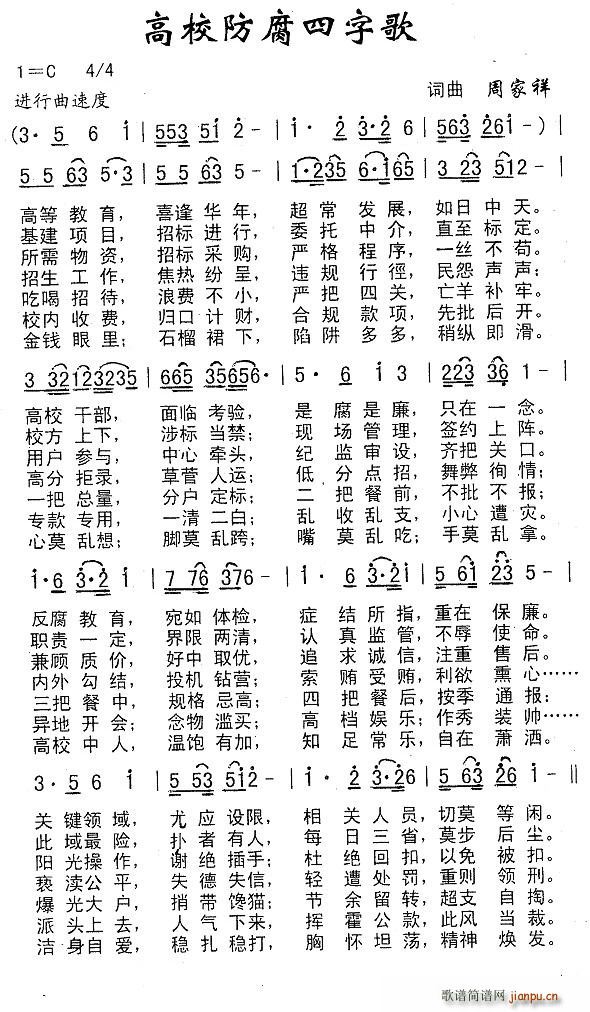 高校防腐四字歌
1=C 4/4
进行曲速度 词曲 周家祥
(3· 5 6 i | 553 51 2 - | i · 2 3·2 6 | 563 261 - ) |
5 5 63 5·3 | 553 52 2 - | 1·235 6·165 | 3 23 512 - |
高等 教育， 喜逢 华年， 超常 发展， 如日 中天。
基建 项目， 招标 进行， 委托 中介， 直至 标定。
所需 物资， 招标 采购， 严格 程序， 一丝 不苟。
招生 工作， 焦热 纷呈， 违规 行徑， 民怨 声声；
吃喝 招待， 浪费 不小， 严把 四关， 亡羊 补牢。
校内 收费， 归口 计财， 合规 款项， 先批 后开。
金钱 眼里； 石榴 裙下， 陷阱 多多， 稍纵 即滑。
3 32123235 | 665 35656· | 5 · 6 i 3 | 223 36 - |
高校 干部， 面临 考验， 是 腐是廉， 只在 一念。
校方 上下， 涉标 当禁； 现 场管理， 签约 上阵。
用户 参与， 中心 牵头， 纪 监审设， 齐把 关口。
高分 拒录， 草菅 人运； 低 分点招， 舞弊 徇情；
一把 总量， 分户 定标； 二 把餐前， 不批 不报；
专款 专用， 一清 二白； 乱 收乱支， 小心 遭灾。
心莫 乱想； 脚莫 乱跨； 嘴 莫乱吃； 手莫 乱拿。
i·6 3·2 i | 7 76 376 - | i · 6 3·2 i | 5 61 23 5 - |
反腐 教育， 宛如 体检， 症 结所指， 重在 保廉。
职责 一定， 界限 两清， 认 真监管， 不辱 使命。
兼顾 质价， 好中 取优， 追 求诚信， 注重 售后。
内外 勾结， 投机 钻营； 索 贿受贿， 利欲 熏心……
三把 餐中， 规格 忌高； 四 把餐后， 按季 通报；
异地 开会； 念物 滥买； 高 档娱乐； 作秀 装帅……
高校 中人， 温饱 有加， 知 足常乐， 自在 萧洒。
3 · 5 6 i | 5 53 512 - | i · 2 3·26 | 5 63 26 i - ‖
关 键领域， 尤 应设限， 相 关人员， 切莫 等闲。
此 域最险， 扑 者有人， 每 日三省， 莫步 后尘。
阳 光操作， 谢 绝插手； 杜 绝回扣， 以免 被扣。
亵 渎公平， 失 德失信， 轻 遭处罚， 重则 领刑。
爆 光大户， 捎 带馋猫； 节 余留转， 超支 自掏。
派 头上去， 人 气下来， 挥 霍公款， 此风 当裁。
洁 身自爱， 稳 扎稳打， 胸 怀坦荡， 精神 焕发。
歌谱简谱网
jianpu.cn